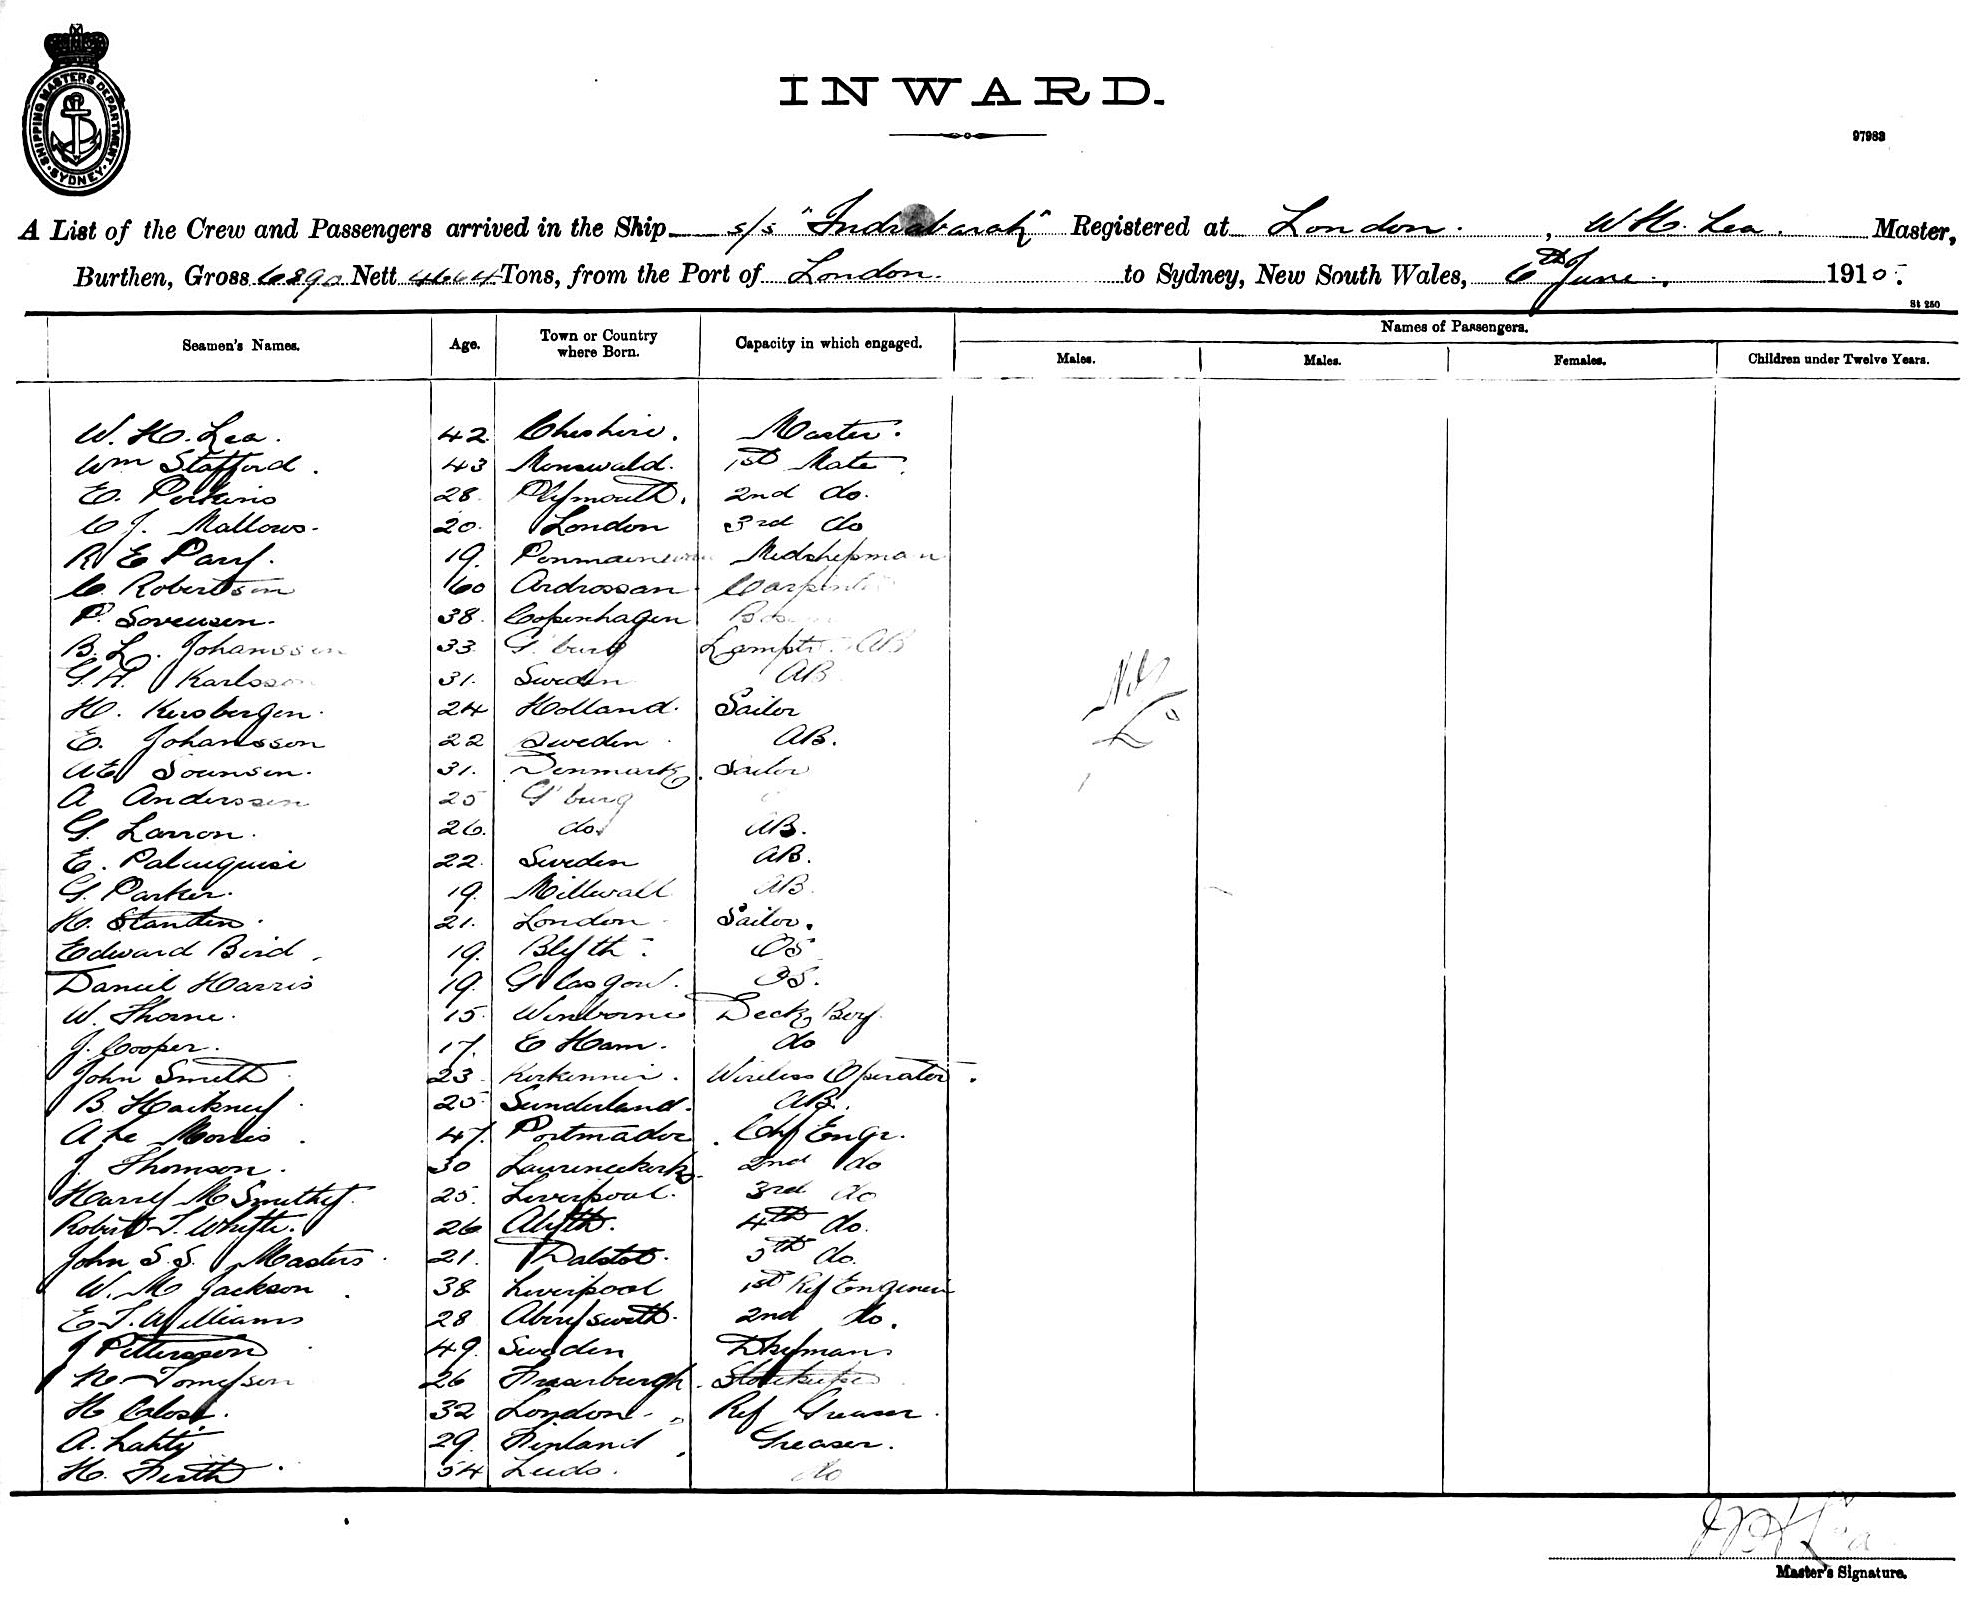 SHIPPING MASTERS DEPARTMENT
SYDNEY
INWARD.
97983
A List of the Crew and Passengers arrived in the Ship s/s "Indrabarah" Registered at London. , W H. Lea. Master,
Burthen, Gross 6890 Nett 4664 Tons, from the Port of London. to Sydney, New South Wales, 6th June. 1910.
St 250
Seamen's Names. Age. Town or Country where Born. Capacity in which engaged. Names of Passengers.
Males. Males. Females. Children under Twelve Years.
W. H. Lea. 42 Cheshire. Master.
Wm Stafford. 43 1st Mate
E. Perkins 28 Plymouth. 2nd do.
C J. Mallows. 20. London 3rd do
R E Parry. 19. Midshipman
C. Robertson 60 Ardrossan Carpenter
P. Sorensen. 38. Copenhagen
B. L. Johansson 33 G'burg Lamptr AB
G. A. Karlsson 31. Sweden AB
H. Kersbergen. 24 Holland. Sailor
E. Johansson 22 Sweden AB.
AE 31. Denmark. Sailor
A Anderssen 25 G'burg
G. Larson. 26. do. AB.
E. 22. Sweden AB.
G. Parker. 19. Millwall AB.
H. Standen. 21. London Sailor.
Edward Bird. 19. Blyth. OS
Daniel Harris 19. Glasgow. OS.
W. Thorne. 15. Winborne Deck Boy.
J. Cooper. 17. E Ham. do
John Smith 23 Wireless Operator.
B. Hackney 25 Sunderland. AB.
A Le Morris. 47. Portmadoc. Chf Engr.
J. Thomson. 30 Laurencekirk 2nd do
Harry M Smithy. 25. Liverpool. 3rd do
Robert T. Whyte. 26 Alyth. 4th do.
John S. S. Masters. 21. 5th do.
W. M Jackson. 38 Liverpool 1st Ref Engineer
E T. Williams 28 Aberyswith. 2nd do.
J Pettersson 49. Sweden Dkyman
26 Fraserburgh. Storekeeper
H Close. 32 London Ref Greaser.
A. Lahti 29. Finland Greaser.
H. Firth 54 Leeds. do
Nil
W H Lea
Master's Signature.